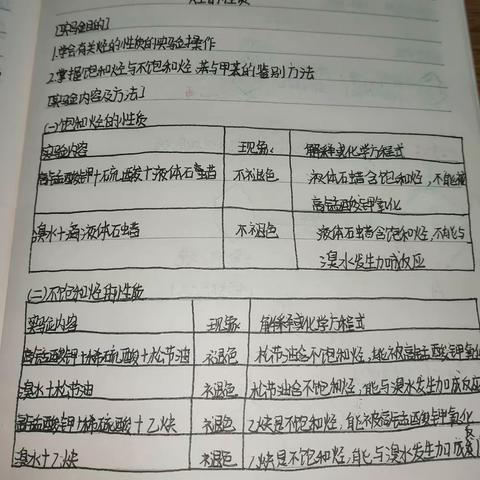 烃的性质
[实验目的]
1.学会有关烃的性质的实验操作
2.掌握饱和烃与不饱和烃、苯与甲苯的鉴别方法
[实验内容及方法]
(一)饱和烃的性质
实验内容 现象 解释或化学方程式
高锰酸钾+硫酸+液体石蜡 不褪色 液体石蜡含饱和烃,不能被
高锰酸钾氧化
溴水+滴液体石蜡 不褪色 液体石蜡含饱和烃,不能与
溴水发生加成反应
(二)不饱和烃的性质
实验内容 现象 解释或化学方程式
高锰酸钾+稀硫酸+松节油 褪色 松节油含不饱和烃,能被高锰酸钾氧化
溴水+松节油 褪色 松节油含不饱和烃,能与溴水发生加成反应
高锰酸钾+稀硫酸+乙炔 褪色 乙炔是不饱和烃,能被高锰酸钾氧化
溴水+乙炔 褪色 乙炔是不饱和烃,能与溴水发生加成反